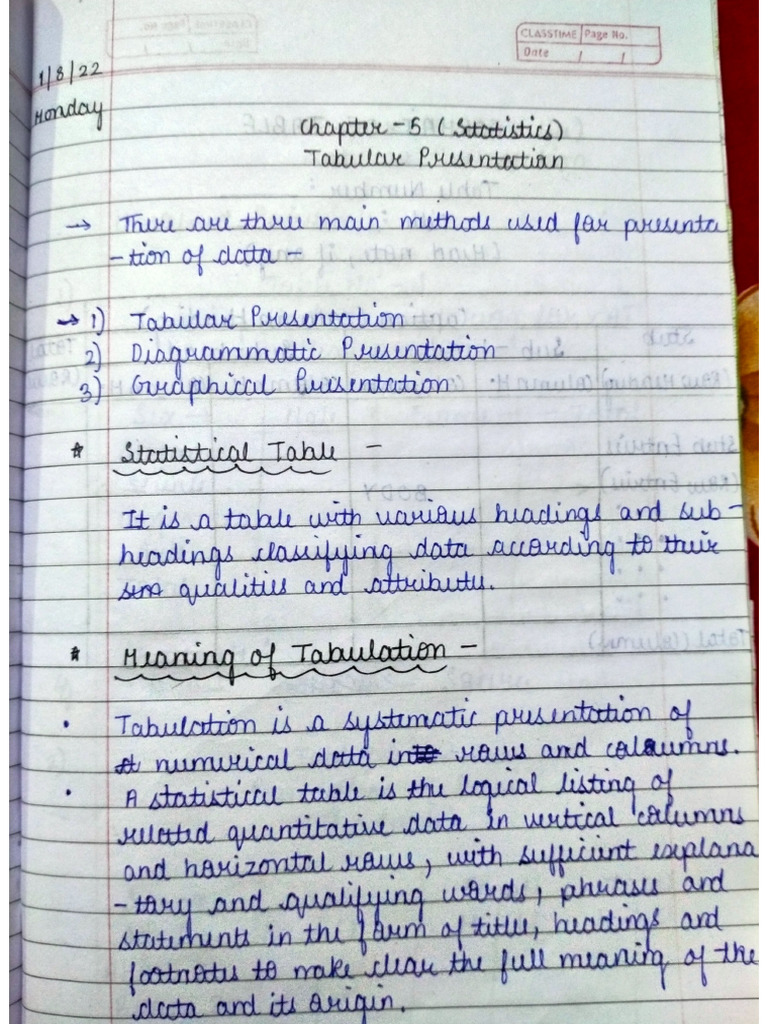 CLASSTIME Page No.
Date / /
1/8/22
Monday
Chapter - 5 (Statistics)
Tabular Presentation
→ There are three main methods used for presenta
-tion of data -
→ 1) Tabular Presentation
2) Diagrammatic Presentation
3) Graphical Presentation
* Statistical Table -
It is a table with various headings and sub-
headings classifying data according to their
qualities and attributes.
* Meaning of Tabulation -
• Tabulation is a systematic presentation of
numerical data in rows and columns.
• A statistical table is the logical listing of
related quantitative data in vertical columns
and horizontal rows, with sufficient explana
-tory and qualifying words, phrases and
statements in the form of titles, headings and
footnotes to make clear the full meaning of the
data and its origin.